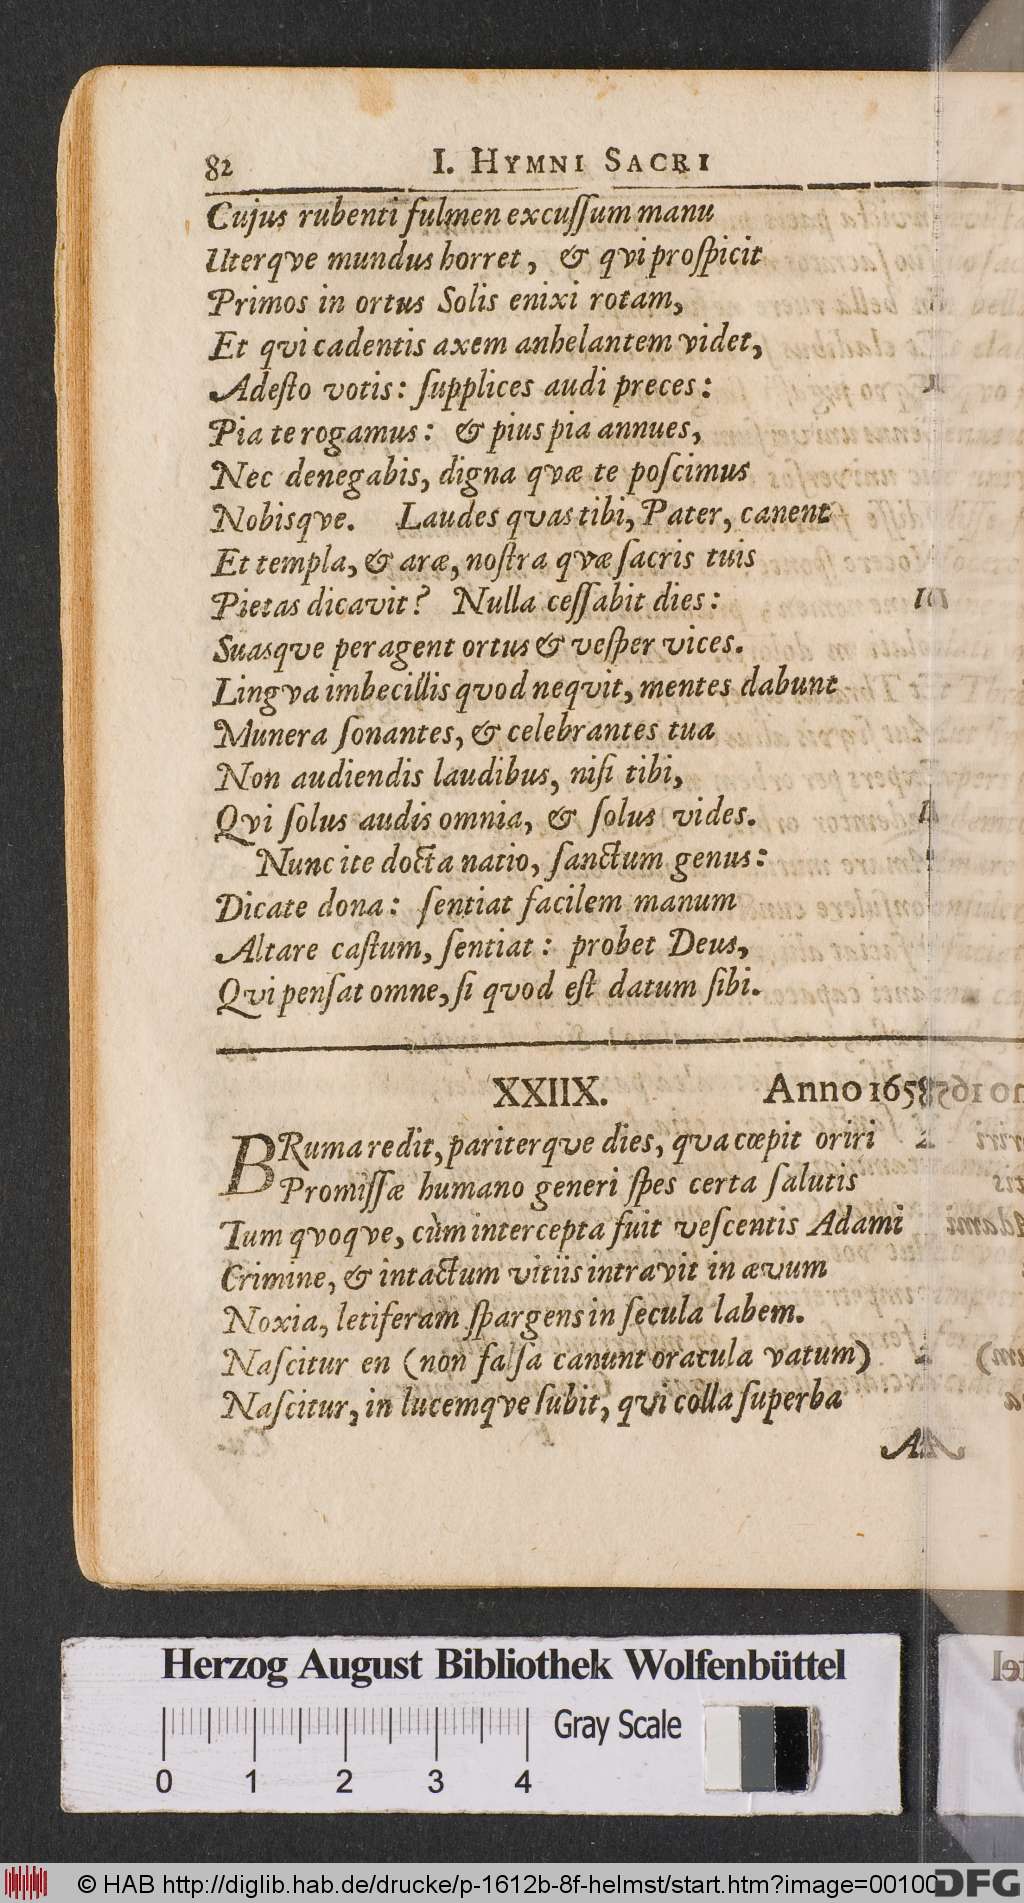 82 I. HYMNI SACRI
Cujus rubenti fulmen excuſſum manu
Uterqve mundus horret, & qvi proſpicit
Primos in ortus Solis enixi rotam,
Et qvi cadentis axem anhelantem videt,
Adeſto votis: ſupplices audi preces:
Pia te rogamus: & pius pia annues,
Nec denegabis, digna qvæ te poſcimus
Nobisqve. Laudes qvas tibi, Pater, canent
Et templa, & aræ, noſtra qvæ ſacris tuis
Pietas dicavit? Nulla ceſſabit dies:
Suasqve peragent ortus & veſper vices.
Lingva imbecillis qvod neqvit, mentes dabunt
Munera ſonantes, & celebrantes tua
Non audiendis laudibus, niſi tibi,
Qvi ſolus audis omnia, & ſolus vides.
Nunc ite docta natio, ſanctum genus:
Dicate dona: ſentiat facilem manum
Altare caſtum, ſentiat: probet Deus,
Qvi penſat omne, ſi qvod eſt datum ſibi.
XXIIX. Anno 1658
BRuma redit, pariterqve dies, qva cœpit oriri
Promiſſæ humano generi ſpes certa ſalutis
Tum qvoqve, cùm intercepta fuit veſcentis Adami
Crimine, & intactum vitiis intravit in ævum
Noxia, letiferam ſpargens in ſecula labem.
Naſcitur en (non falſa canunt oracula vatum)
Naſcitur, in lucemqve ſubit, qvi colla ſuperba
Herzog August Bibliothek Wolfenbüttel
Gray Scale
0 1 2 3 4
© HAB http://diglib.hab.de/drucke/p-1612b-8f-helmst/start.htm?image=00100
DFG